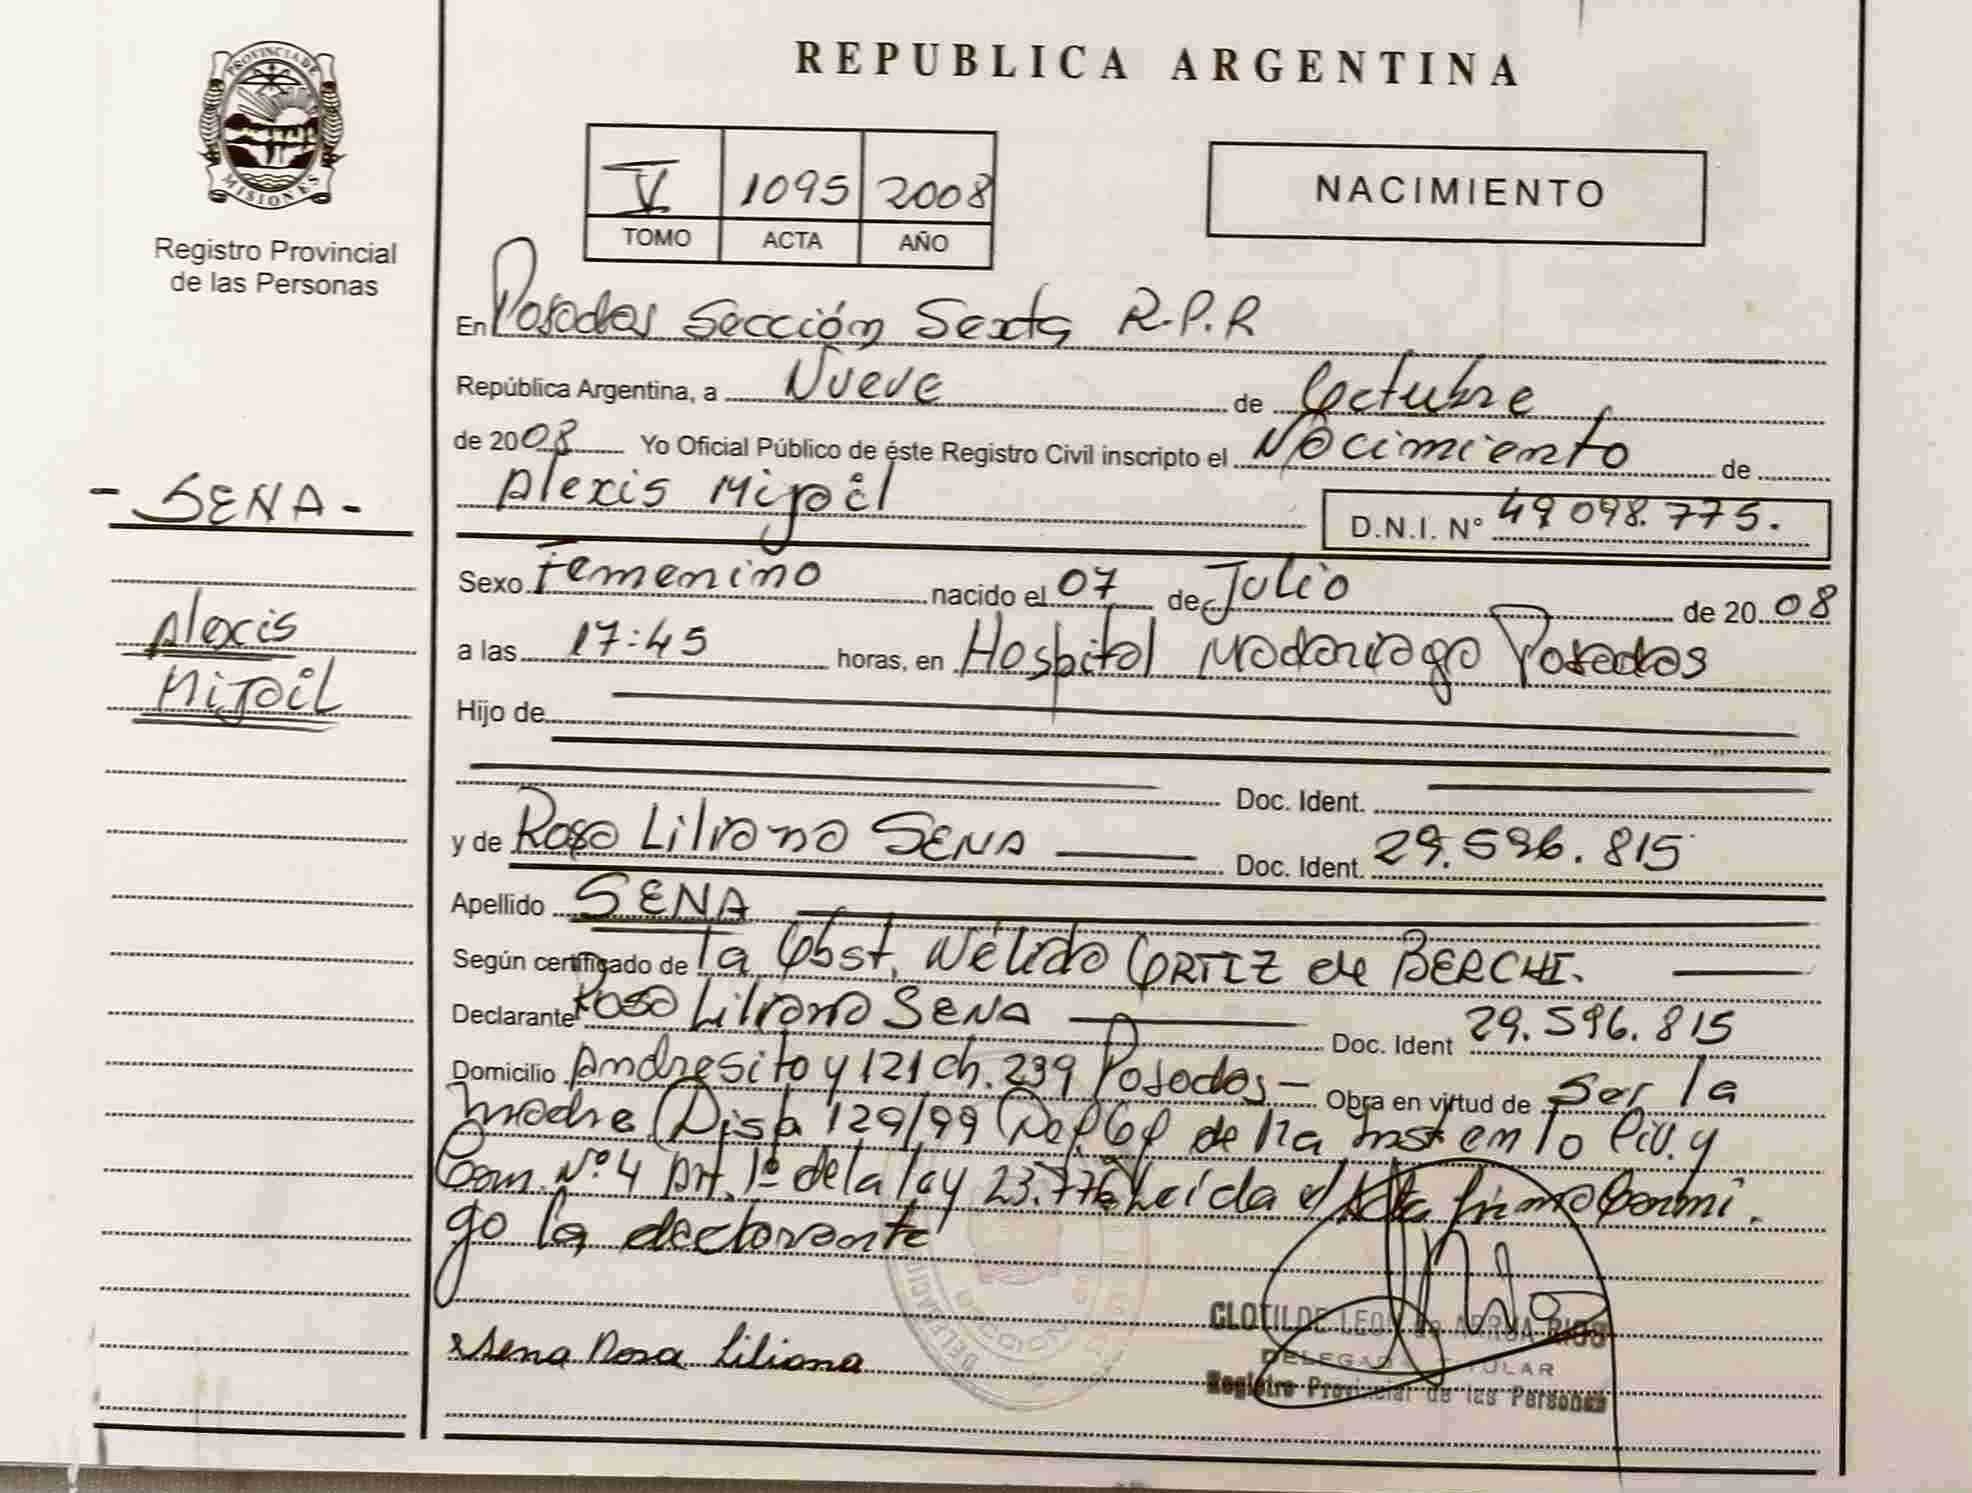 PROVINCIA DE
MISIONES
Registro Provincial
de las Personas
REPUBLICA ARGENTINA
V 1095 2008
TOMO ACTA AÑO
NACIMIENTO
En Posadas Sección Sexta R.P.R
República Argentina, a Nueve de Octubre
de 2008 Yo Oficial Público de éste Registro Civil inscripto el Nacimiento de
Alexis Mijail D.N.I. N° 49 098.775.
- SENA -
Alexis
Mijail
Sexo Femenino nacido el 07 de Julio de 2008
a las 17:45 horas, en Hospital Madariaga Posadas
Hijo de
Doc. Ident.
y de Rosa Liliana SENA Doc. Ident. 29.596.815
Apellido SENA
Según certificado de la Obst. Nélida ORTIZ de BERCHI.
Declarante Rosa Liliana SENA Doc. Ident 29.596.815
Domicilio Andresito y 121 ch. 239 Posadas - Obra en virtud de Ser la
madre 129/99 de la Inst en lo Civ. y
Com. N° 4 Art. 1° de la ley 23.776 Leida el Acta firma Conmi
go la declarante
Sena Rosa Liliana
CLOTILDE LEON de RIOS
DELEGADA TITULAR
Registro Provincial de las Personas